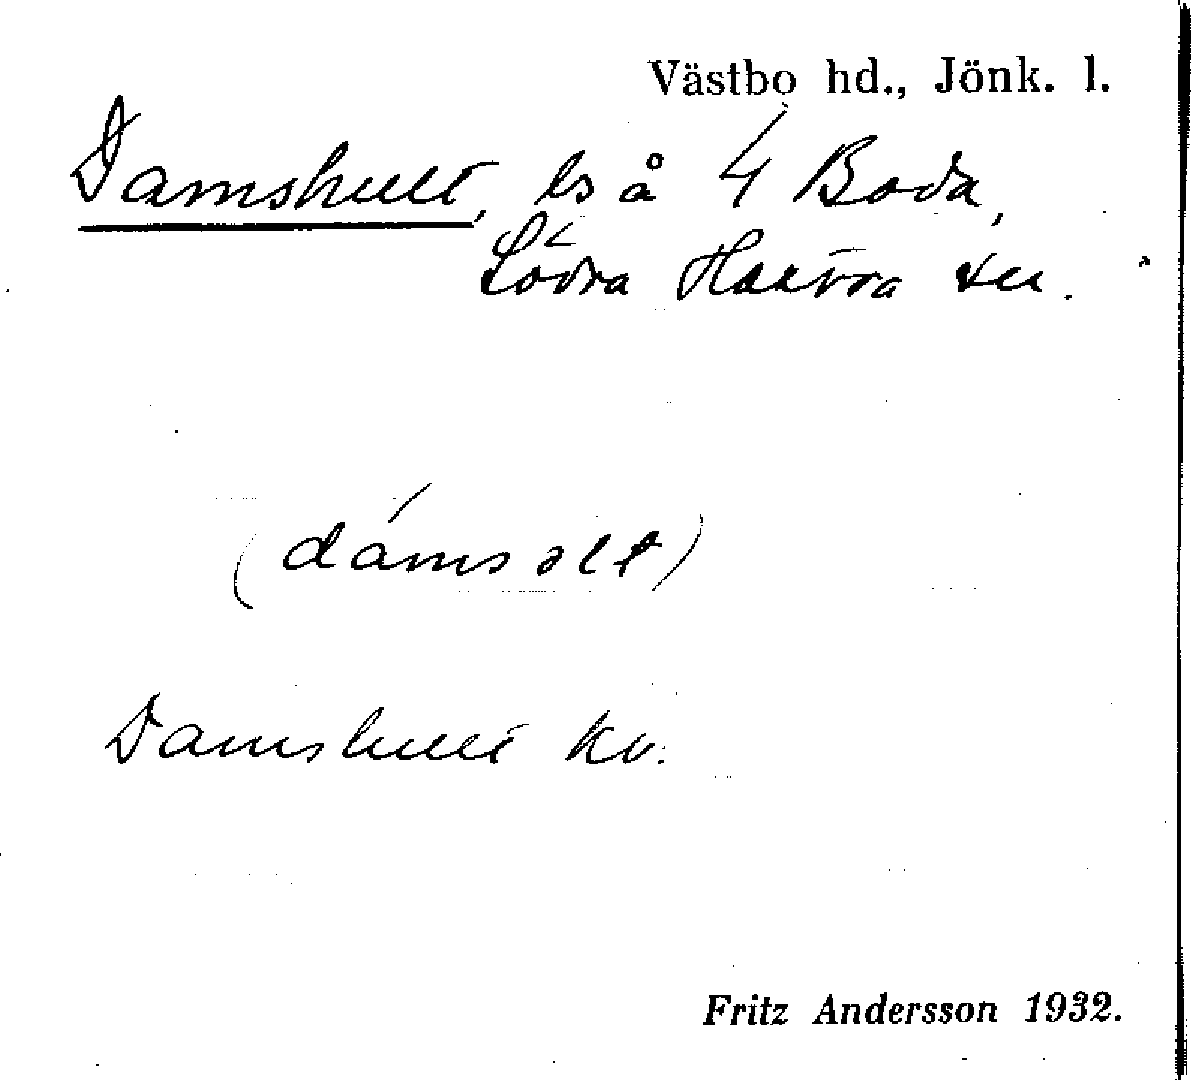 Västbo hd., Jönk. l.
Damshult, ls å 4 Boda,
Södra Hestra sn.
(dámsəlt)
Damshult kv.
Fritz Andersson 1932.